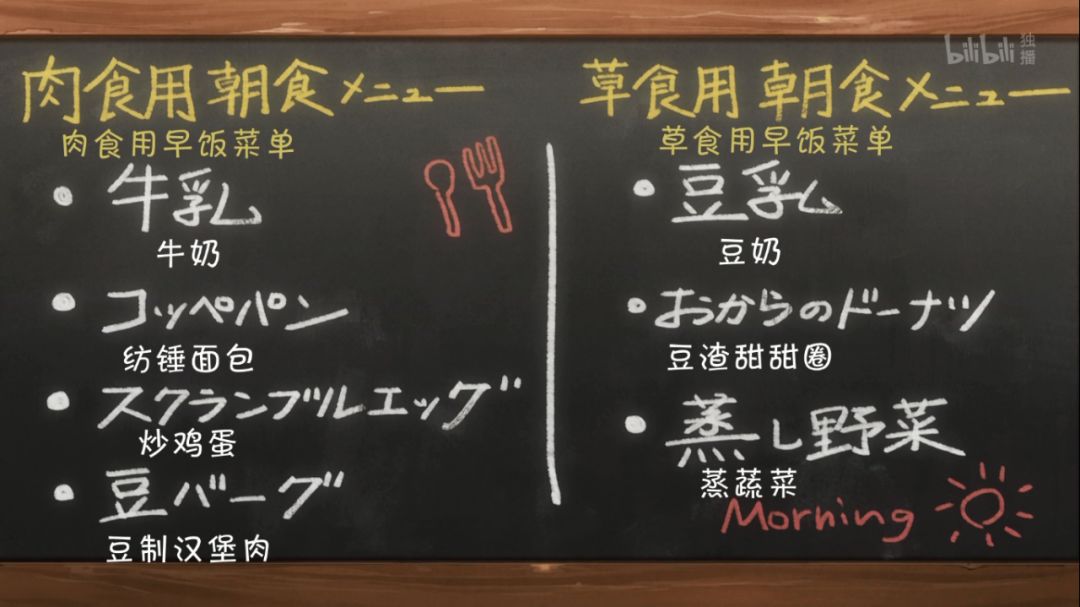 bilibili 独播
肉食用 朝食メニュー
肉食用早饭菜单
・牛乳
牛奶
・コッペパン
纺锤面包
・スクランブルエッグ
炒鸡蛋
・豆バーグ
豆制汉堡肉
草食用 朝食メニュー
草食用早饭菜单
・豆乳
豆奶
・おからのドーナツ
豆渣甜甜圈
・蒸し野菜
蒸蔬菜
Morning